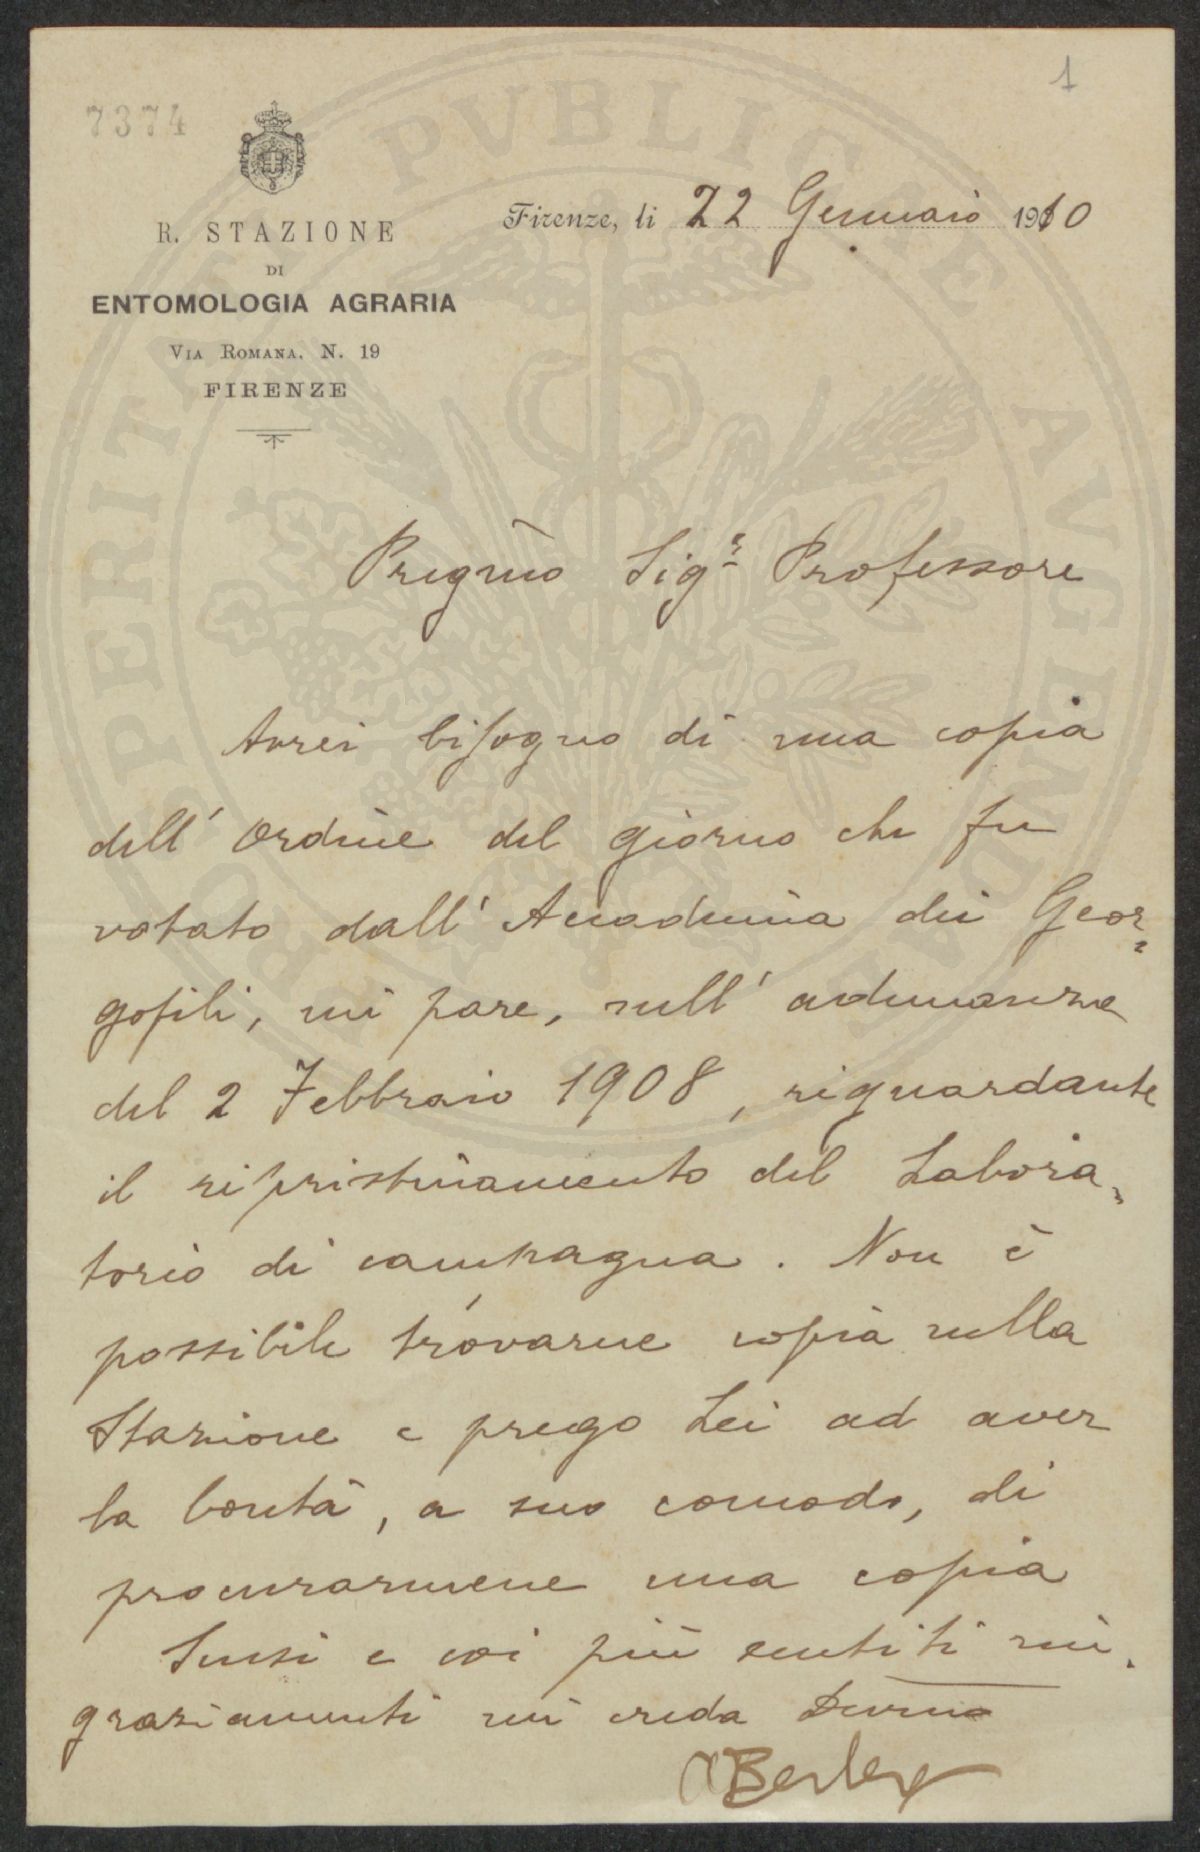 1
7374
R. STAZIONE
DI
ENTOMOLOGIA AGRARIA
VIA ROMANA. N. 19
FIRENZE
Firenze, li 22 Gennaio 1910
Pregmo Sigr Professore
Avrei bisogno di una copia
dell' Ordine del giorno che fu
votato dall' Accademia dei Geor=
gofili, mi pare, nell' adunanza
del 2 Febbraio 1908, riguardante
il ripristinamento del Labora=
torio di campagna. Non è
possibile trovarne copia nella
Stazione e prego Lei ad aver
la bontà, a suo comodo, di
procurarmene una copia
Scusi e coi più sentiti rin=
graziamenti mi creda Devmo
A Berlese
PROSPERITATI PVBLICAE AVGENDAE